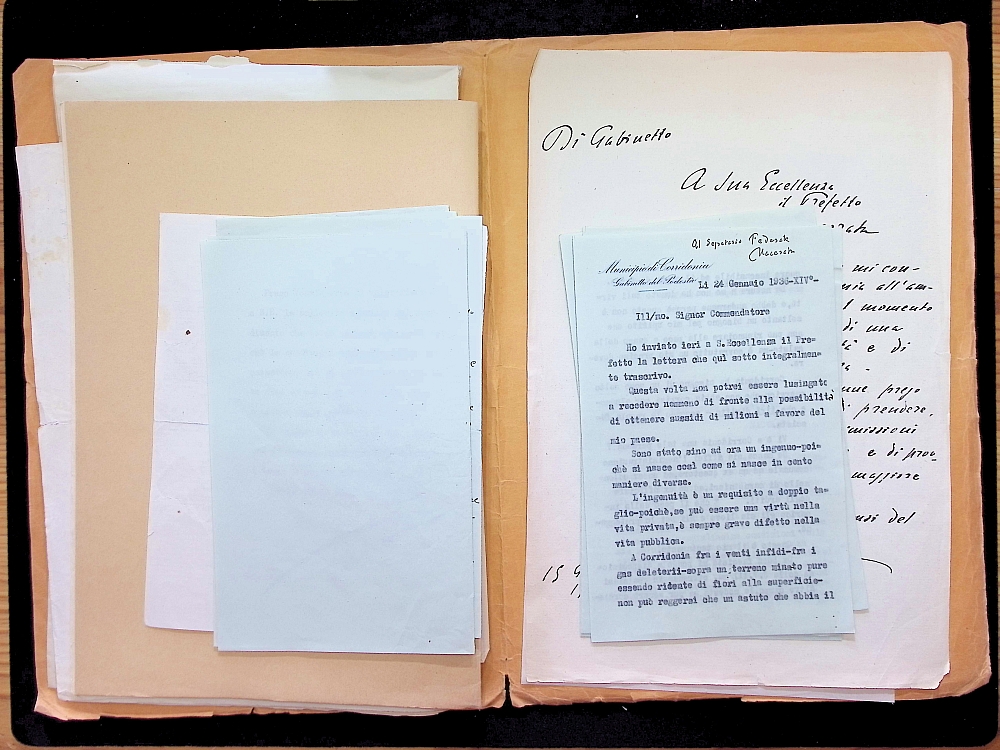 Di Gabinetto
A Sua Eccellenza
il Prefetto
mi con-
all'am-
l momento
di una
e di
prego
prendere,
e di
maggiore
del
15
Al Segretario Federale
Macerata
Municipio di Corridonia
Gabinetto del Podestà
Li 24 Gennaio 1936-XIV°-
Ill/mo. Signor Commendatore
Ho inviato ieri a S.Eccellenza il Pre-
fetto la lettera che qui sotto integralmen-
te trascrivo.
Questa volta non potrei essere lusingato
a recedere nemmeno di fronte alla possibilità
di ottenere sussidi di milioni a favore del
mio paese.
Sono stato sino ad ora un ingenuo-poi-
chè si nasce così come si nasce in cento
maniere diverse.
L'ingenuità è un requisito a doppio ta-
glio-poichè,se può essere una virtù nella
vita privata,è sempre grave difetto nella
vita pubblica.
A Corridonia fra i venti infidi-fra i
gas deleterii-sopra un terreno minato pure
essendo ridente di fiori alla superficie-
non può reggersi che un astuto che abbia il